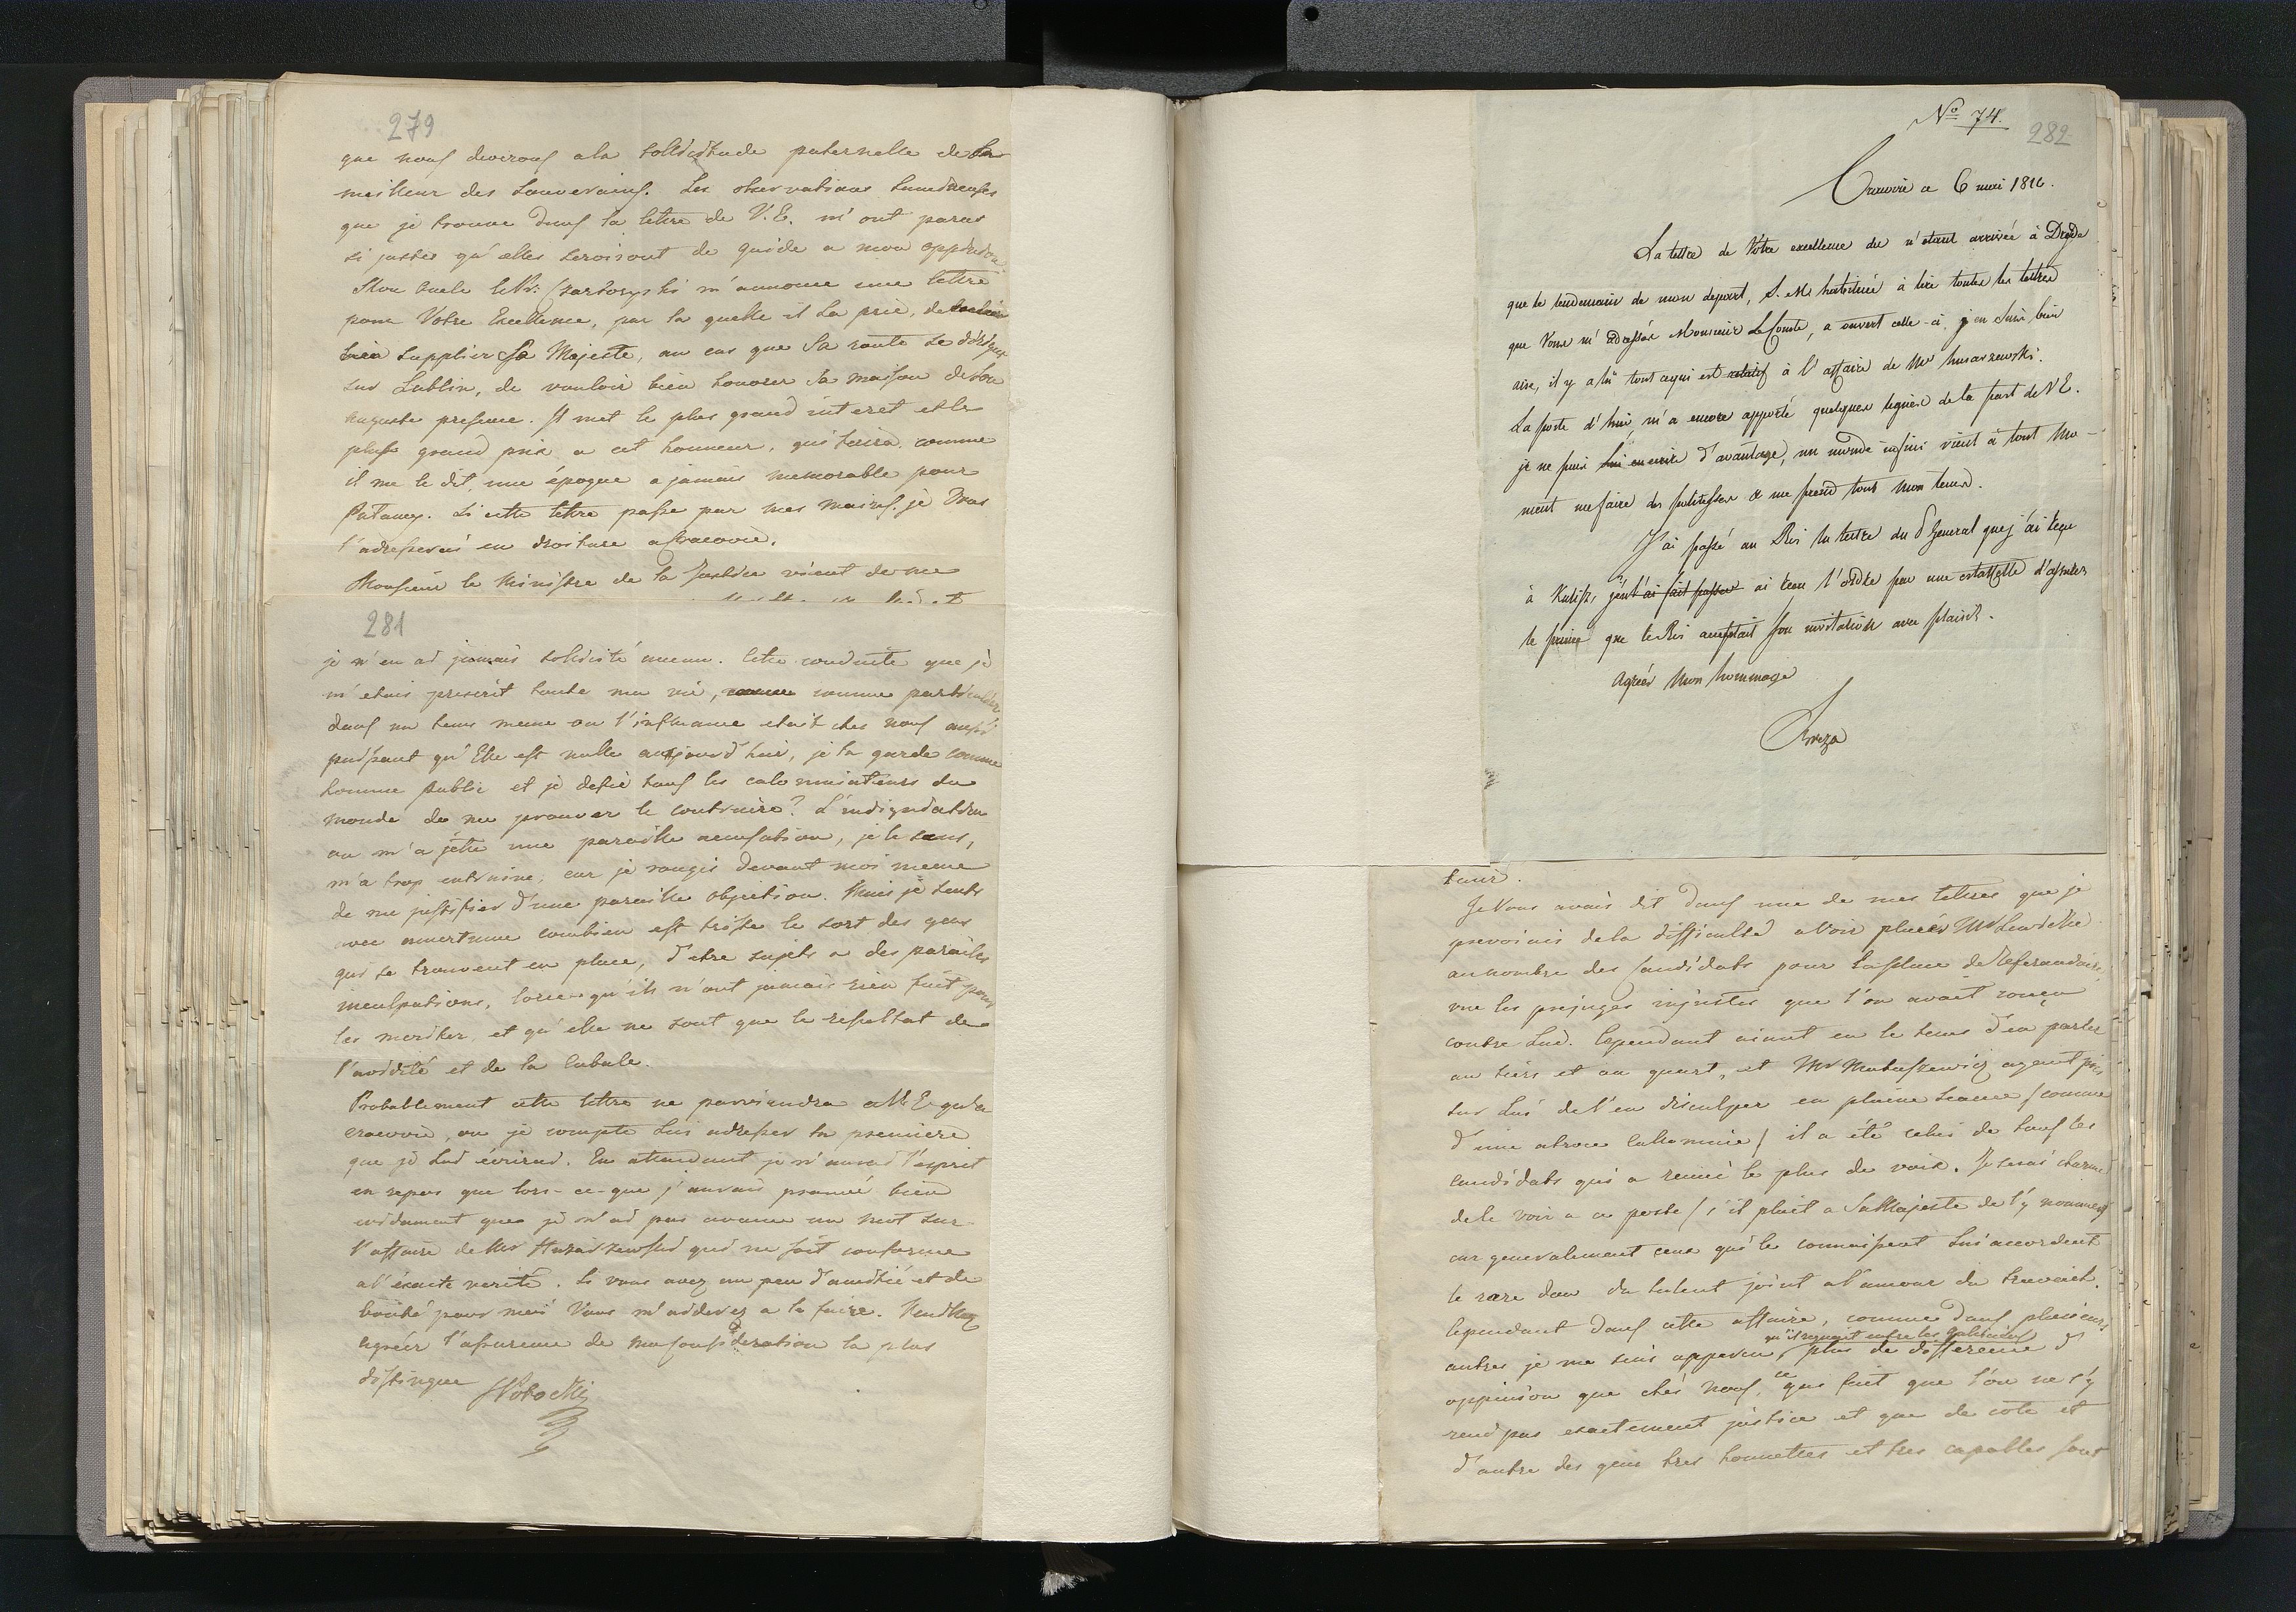 279
que nous devrons a la sollicitude paternelle de la
meilleur des Souverains. Les observations lumineuses
que je trouve dans la lettre de V. E. m'ont parus
si justes qu'elles seroisont de guide a mon oppinion.
Mon oncle le Pr: Czartoryski m'annonce une lettre
pour Votre Excellence, par la quelle il La prie, de vouloir
bien supplier Sa Majeste, au cas que Sa route se dirige
sur Lublin, de vouloir bien honorer Sa maison de Son
auguste presence. Il met le plus grand interet et le
plus grand prix a cet honneur, qui ferira comme
il me le dit, une époque a jamais memorable pour
Pulawy. Si cette lettre passe par mes mains, je Vous
l'adresserai en droiture a Cracovie.
Monsieur le Ministre de la Justice vient de me
281
je n'en ai jamais sollicité aucun. Cette conduite que je
m'etais prescrit toute ma vie, comme particulier
dans un tems meme ou l'influance etait ches nous aussi
puissant qu'Elle est nulle aujourd'hui, je la garde comme
homme public et je defie tous les calomniateurs du
monde de me prouver le contraire? L'indignation
ou m'a jetté une pareille accusation, je le sens,
m'a trop entrainé, car je rougis devant moi meme
de me justifier d'une pareille objection. Mais je sents
avec amertume combien est triste le sort des gens
qui se trouvent en place, d'etre sujets a des pareilles
inculpations, lorsqu'ils n'ont jamais rien fait pour
les meriter, et qu'elle ne sont que le resultat de
l'avidité et de la Cabale.
Probablement cette lettre ne parviendra a V. E. qu'a
Cracovie, ou je compte Lui adresser la premiere
que je Lui écrirai. En attendant je n'aurai l'esprit
en repos que lors-ce-que j'aurais prouvé bien
evidament que je n'ai pas avancé un mot sur
l'affaire de Mr Huzarzewski qui ne soit conforme
a l'exacte verité. Si vous avez un peu d'amitié et de
bonté pour moi Vous m'aiderez a le faire. Veuillez
agréer l'assurence de ma consideration la plus
distingue SPotocki
No 74.
282
Cracovie ce 6 mai 1810.
La lettre de Votre excellence du n'étant arrivée à Dresde
que le lendemain de mon depart, S. M. habituée à lire toutes les lettres
que Vous m'adressés Monsieur Le Comte, a ouvert celle-ci, j'en suis bien
aise, il y a lû tout ce qui est relatif à l'affaire de Mr husarzewski.
La poste d'hui m'a encore apporté quelques lignes de la part de V E.
je ne puis lui en ecrire d'avantage, un monde infini vient à tout mo-
ment me faire des politesses & me prend tout mon tems.
J'ai passé au Roi la lettre du P General que j'ai reçu
à Kalisz, je l'ai fait passer ai reçu l'ordre par une estaffette d'assurer
le prince que le Roi acceptait son invitation avec plaisir.
Agréés Mon hommage
Breza
tenir.
Je Vous avais dit dans une de mes lettres que je
prevoiais de la difficulté a Voir placer Mr Lewicki
au nombre des Candidats pour la place de Referandaire,
vue les prejuges injustes que l'on avait conçu
contre Lui. Cependant aiant eu le tems d'en parler
au tiers et au quart, et Mr Matuszewicz ayant pris
sur Lui de l'en disculper en pleine seance / comme
d'une atroce Calomnie / il a été celui de tous les
candidats qui a reuni le plus de voix. Je serai charmé
de le voir a ce poste / s'il plait a Sa Majeste de l'y nommer/
car generalement ceux qui le connaissent Lui accordent
le rare don du talent joint a l'amour du travail.
Cependant dans cette affaire, comme dans plusieurs
qu'il regnait entre les Galiciens
autres je me suis apperçu plus de difference d'
oppinion que chés nous, ce que fait que l'on ne s'y
rend pas exactement justice et que de cote et
d'autre des gens tres honnettes et tres capables sont